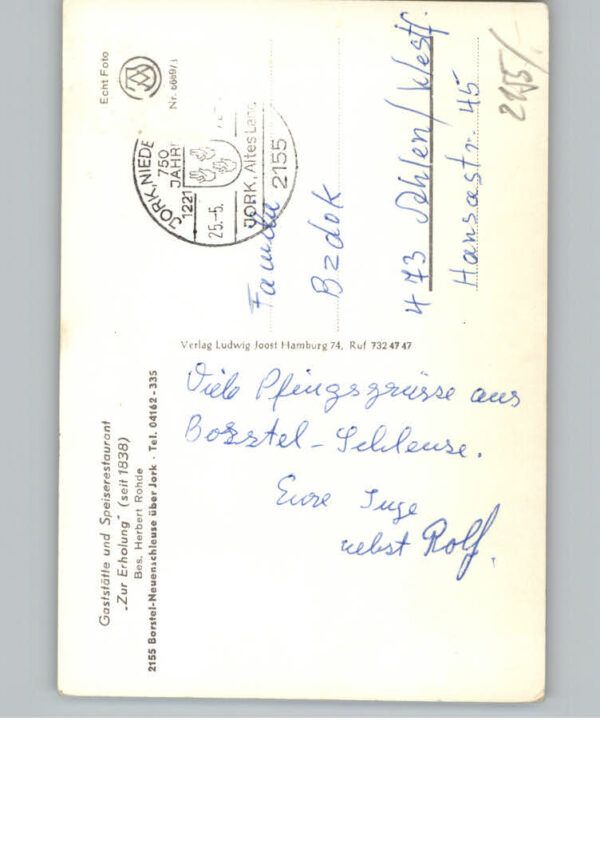 Gaststätte und Speiserestaurant
„Zur Erholung" (seit 1838)
Bes. Herbert Rohde
2155 Borstel-Neuenschleuse über Jork · Tel. 04162-335
Viele Pfingsgrüsse aus
Borstel-Schleuse.
Eure Inge
nebst Rolf.
Verlag Ludwig Joost Hamburg 74, Ruf 732 47 47
Echt Foto
JORK, NIEDE
750
JAHR
1221
25.-5.
JORK, Altes Land
2155
Familie
Bzdok
473 Ahlen/Westf.
Hansastr. 45